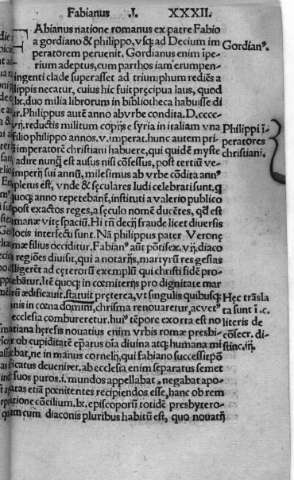 Fabianus I. XXXII.
Abianus natione romanus ex patre Fabio
a gordiano & philippo, vsq; ad Decium im
peratorem peruenit. Gordianus enim ipe
rium adeptus, cum parthos iam erumpen
Gordian⁹.
ingenti clade superasset ad triumphum rediēs a
philippis necatur, cuius hic fuit præcipua laus, quod
duo milia librorum in bibliotheca habuisse di
Philippus autē anno abvrbe condita .D.cccc.
reductis militum copiis e syria in italiam vna
filio philippo annos .v. imperat. hunc autem pri
imperatorē christiani habuere, qui quidē myste
Philippi ī
peratores
christiani.
adire nunq̄ est ausus nisi cōfessus, post tertiū ve
imperij sui annū, milesimus ab vrbe cōdita ann⁹
pletus est, vnde & seculares ludi celebrati sunt, q
quoq; anno repetebant, instituti a valerio publico
post exactos reges, a seculo nomē ducētes, qd est
manæ vitę spaciū. Hi tn̄ decij fraude licet diuersis
locis interfecti sunt. Nā philippus pater Veronę
mæ filius occiditur. Fabian⁹ aūt pōtifex .vij. diaco
regiōes diuisit, qui a notarijs, martyrū res gestas
colligerēt ad cęterorū exemplū qui christi fidē pro
tebātur. Itē quoq; in cœmiterijs pro dignitate mar
ędificauit. statuit pręterea, vt singulis quibusq;
annis in cœna domini, chrisma renouaretur, & vet⁹
Hęc trāsla
ta sunt i .c.
ecclesia combureretur. hui⁹ tēpore exorta est no
uatiana heresis nouatius enim vrbis romæ presbi
literis de
cōsecr. di
ter ob cupiditatē ep̄atus oia diuina atq; humana mi
stinc. iij.
scebat, ne in manus cornelij, qui fabiano successit pō
tificatus deueniret, ab ecclesia enim separatus semet
suos puros .i. mundos appellabat, negabat apo
statas etiā pœnitentes recipiendos esse, hanc ob rem
concilium .lx. episcoporū totidē presbytero
cum diaconis pluribus habitū est, quo nouatij